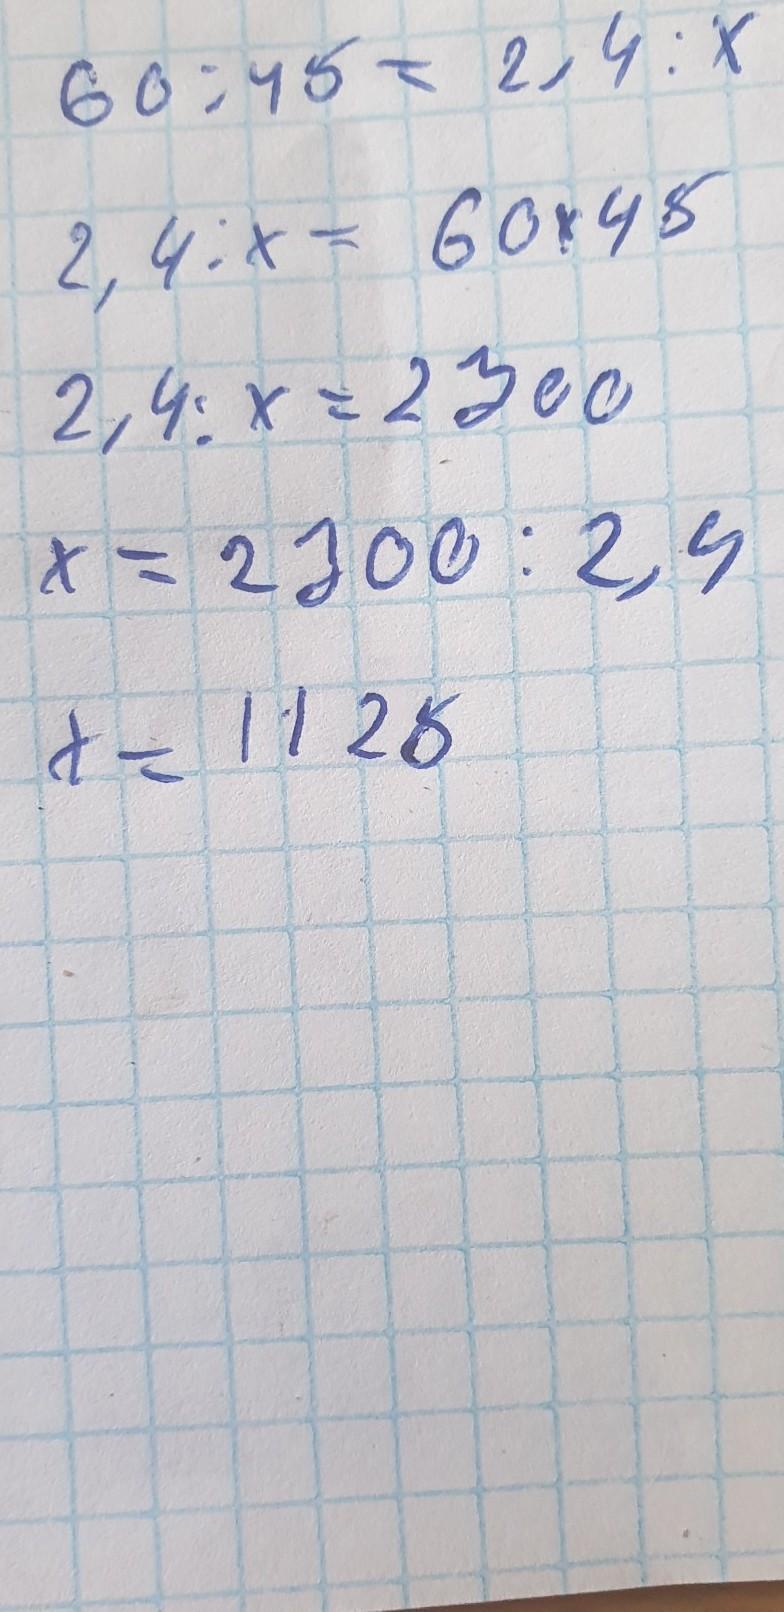 60:45 = 2,4:x
2,4:x = 60x45
2,4:x = 2700
x = 2700:2,4
x = 1125